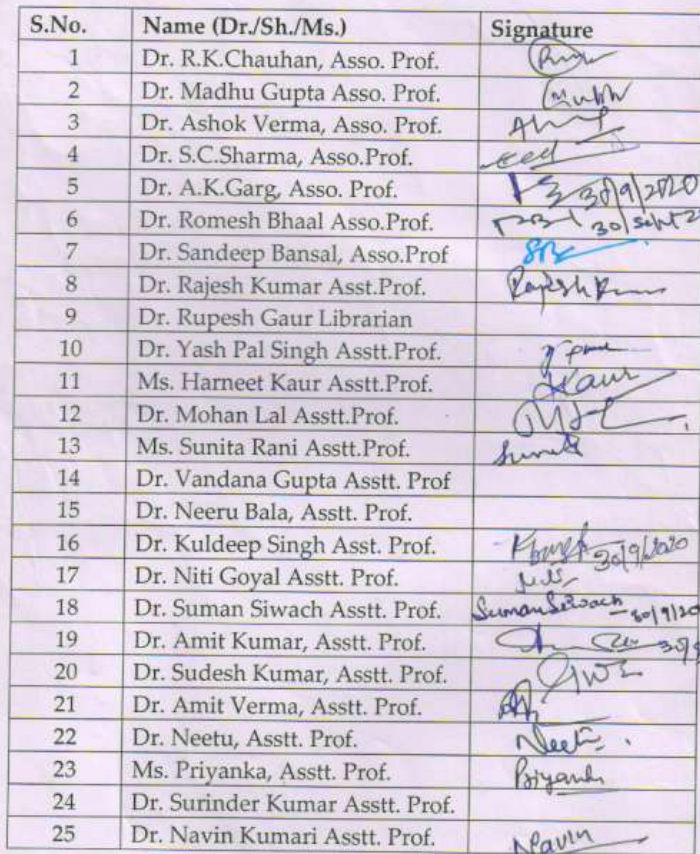 S.No. Name (Dr./Sh./Ms.) Signature
1 Dr. R.K.Chauhan, Asso. Prof.
2 Dr. Madhu Gupta Asso. Prof.
3 Dr. Ashok Verma, Asso. Prof.
4 Dr. S.C.Sharma, Asso.Prof.
5 Dr. A.K.Garg, Asso. Prof. 30/9/2020
6 Dr. Romesh Bhaal Asso.Prof.
7 Dr. Sandeep Bansal, Asso.Prof
8 Dr. Rajesh Kumar Asst.Prof.
9 Dr. Rupesh Gaur Librarian
10 Dr. Yash Pal Singh Asstt.Prof.
11 Ms. Harneet Kaur Asstt.Prof. Kaur
12 Dr. Mohan Lal Asstt.Prof.
13 Ms. Sunita Rani Asstt.Prof.
14 Dr. Vandana Gupta Asstt. Prof
15 Dr. Neeru Bala, Asstt. Prof.
16 Dr. Kuldeep Singh Asst. Prof. 30/9/2020
17 Dr. Niti Goyal Asstt. Prof.
18 Dr. Suman Siwach Asstt. Prof. Suman Siwach
19 Dr. Amit Kumar, Asstt. Prof.
20 Dr. Sudesh Kumar, Asstt. Prof.
21 Dr. Amit Verma, Asstt. Prof.
22 Dr. Neetu, Asstt. Prof.
23 Ms. Priyanka, Asstt. Prof.
24 Dr. Surinder Kumar Asstt. Prof.
25 Dr. Navin Kumari Asstt. Prof. Navin